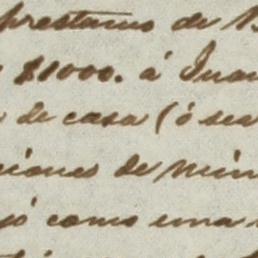 prestamo de
$1000. á Juan
de casa (ó sea
ciones de min
jó como una